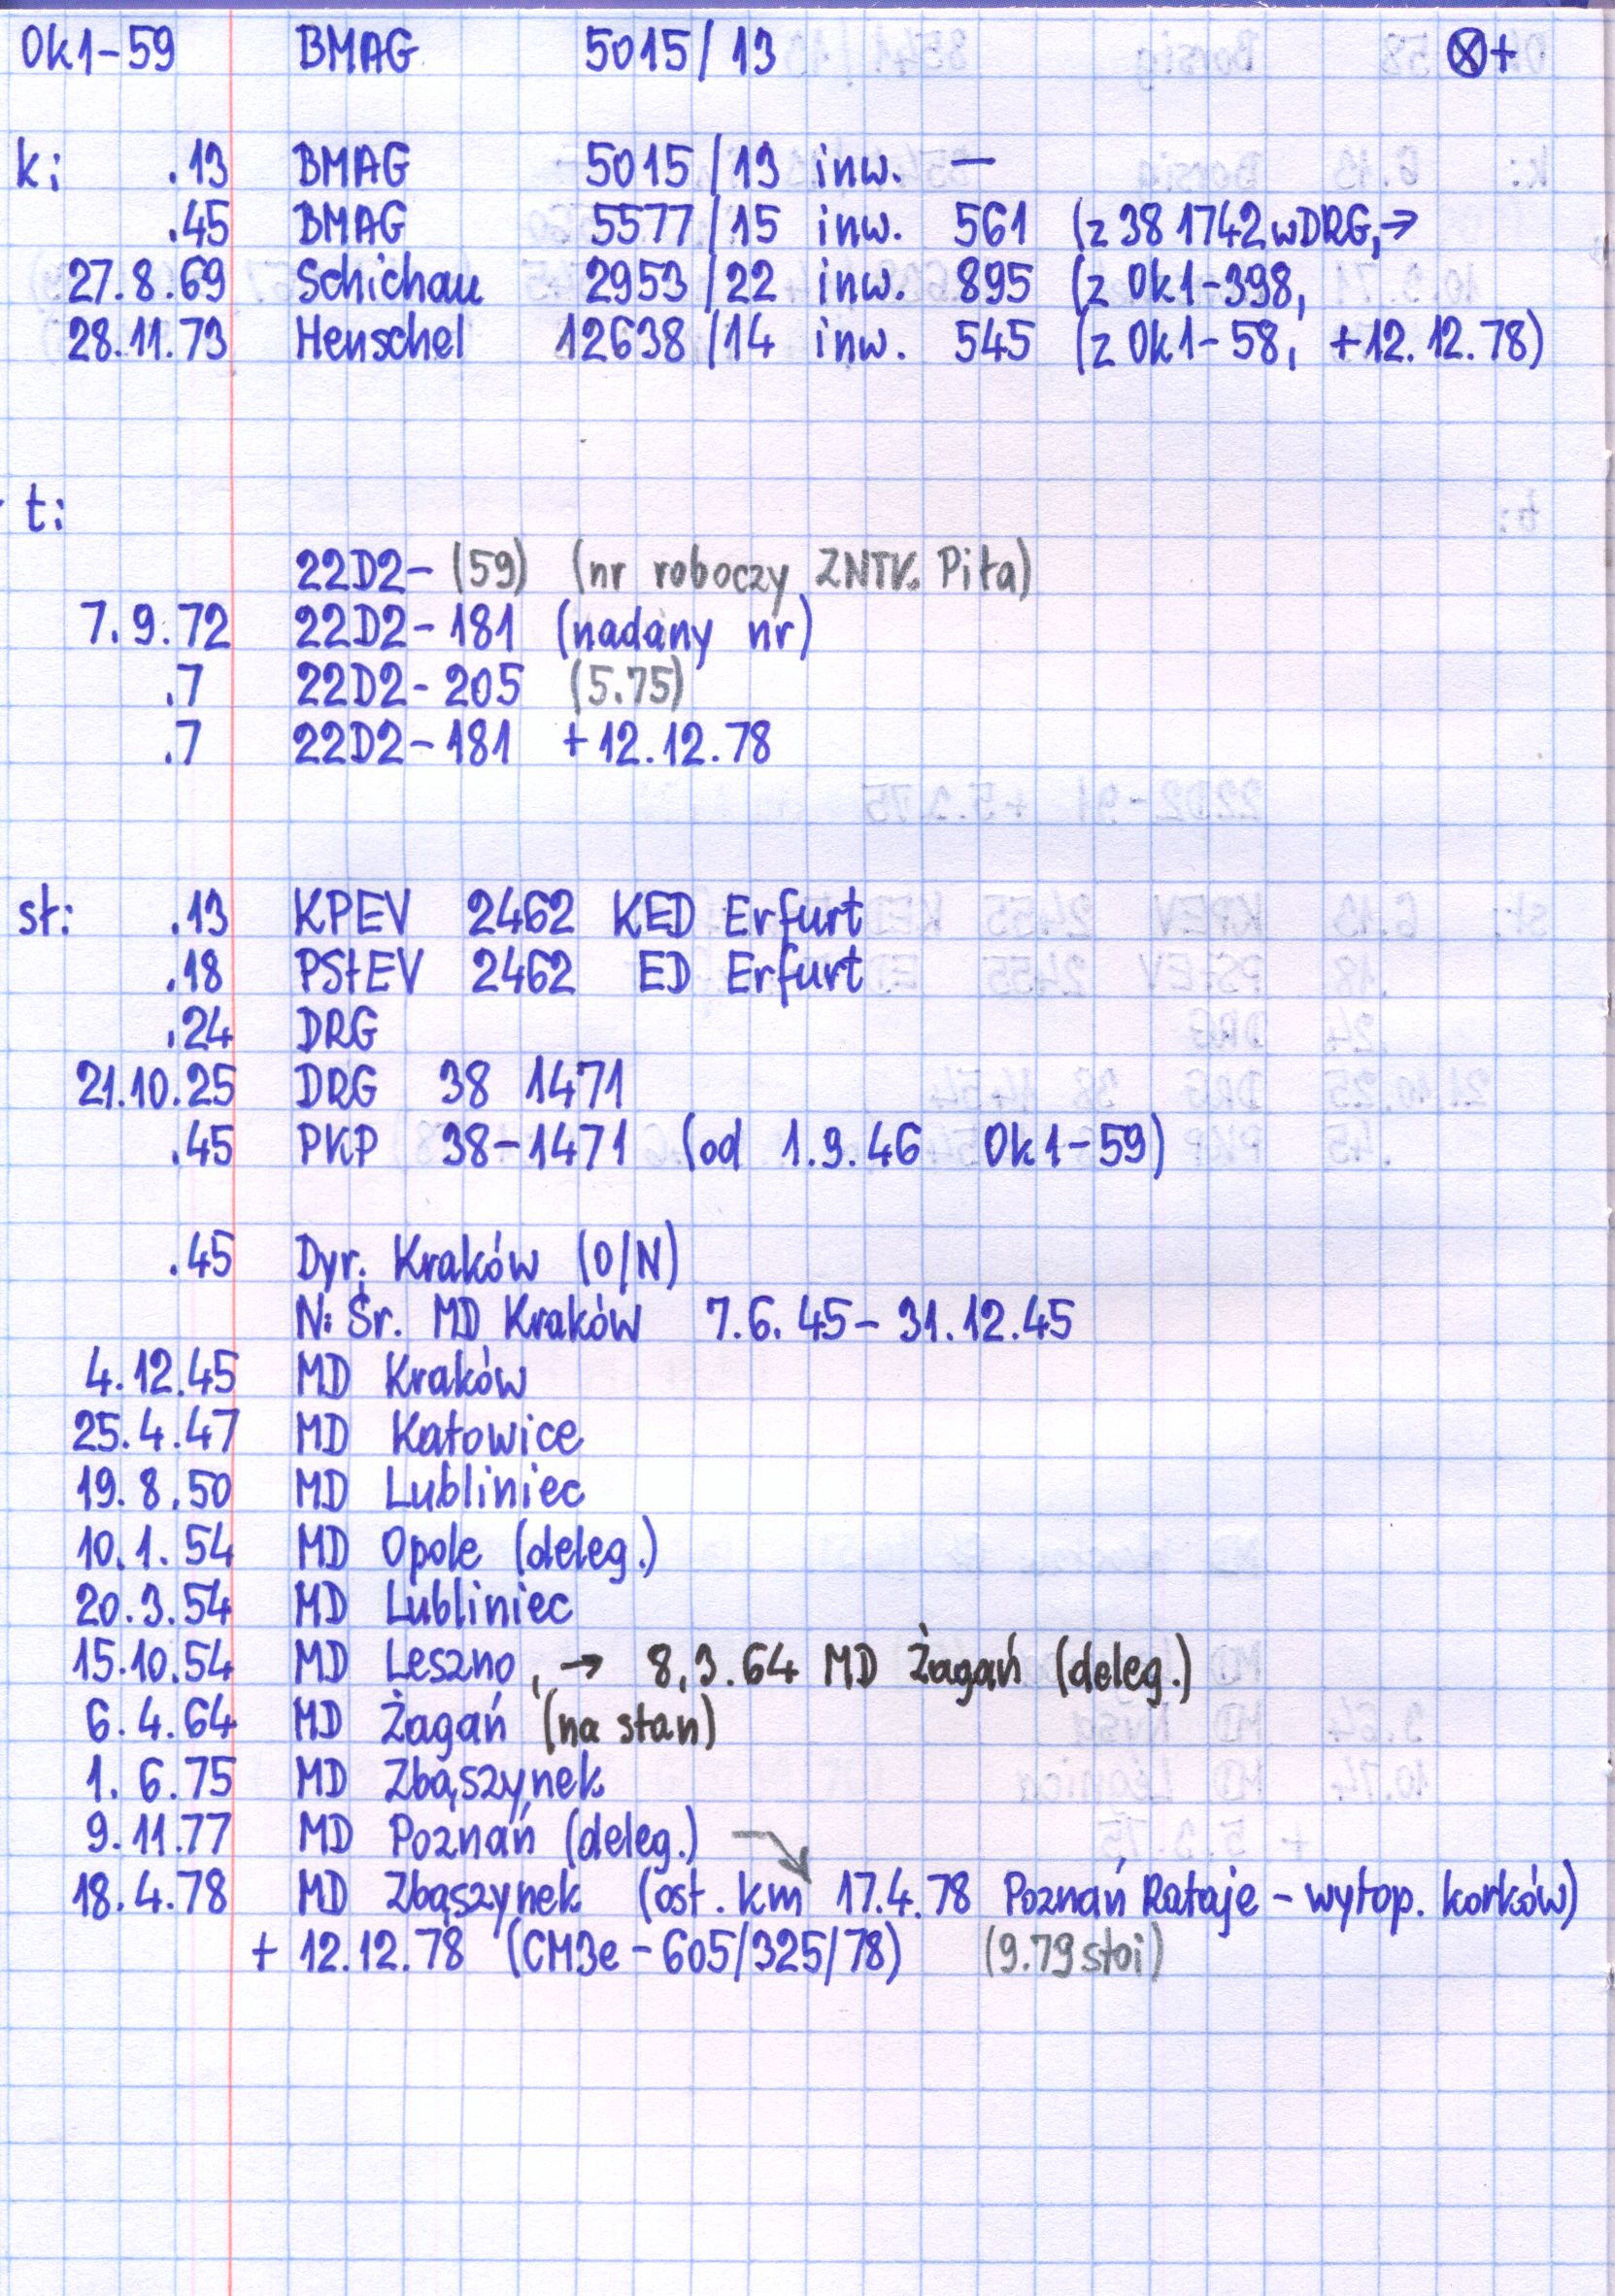 Ok1-59 BMAG 5015/13 ⊗+
k: .13 BMAG 5015/13 inw. —
.45 BMAG 5577/15 inw. 561 (z 38 1742 w DRG, →
27.8.69 Schichau 2953/22 inw. 895 (z Ok1-398,
28.11.73 Henschel 12638/14 inw. 545 (z Ok1-58, +12.12.78)
t:
22D2-(59) (nr roboczy ZNTK Piła)
7.9.72 22D2-181 (nadany nr)
.7 22D2-205 (5.75)
.7 22D2-181 +12.12.78
sł: .13 KPEV 2462 KED Erfurt
.18 PStEV 2462 ED Erfurt
.24 DRG
21.10.25 DRG 38 1471
.45 PKP 38-1471 (od 1.9.46 Ok1-59)
.45 Dyr. Kraków (O/N)
N: Śr. MD Kraków 7.6.45-31.12.45
4.12.45 MD Kraków
25.4.47 MD Katowice
19.8.50 MD Lubliniec
10.1.54 MD Opole (deleg.)
20.3.54 MD Lubliniec
15.10.54 MD Leszno, → 8.3.64 MD Żagań (deleg.)
6.4.64 MD Żagań (na stan)
1.6.75 MD Zbąszynek
9.11.77 MD Poznań (deleg.)
18.4.78 MD Zbąszynek (ost. km 17.4.78 Poznań Rataje - wytop. korków)
+ 12.12.78 (CM3e-605/325/78) (9.79 stoi)